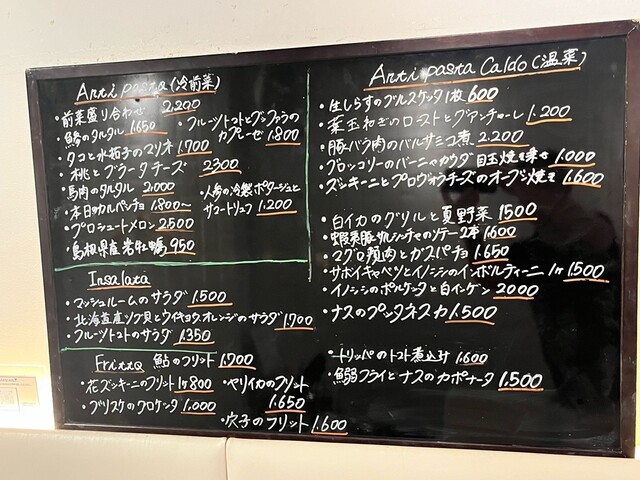 Antipasta (冷前菜)
・前菜盛り合わせ 2,200
・鯵のタルタル 1.650
・フルーツトマトとブッファラの
カプレーゼ 1.800
・タコと水茄子のマリネ 1.700
・桃とブラータチーズ 2300
・馬肉のタルタル 2.000
・人参の冷製ポタージュと
サマートリュフ 1.200
・本日のカルパッチョ 1.800～
・プロシュートメロン 2500
・島根県産岩牡蠣 950
Insalata
・マッシュルームのサラダ 1.500
・北海道産ツブ貝とウイキョウ、オレンジのサラダ 1.700
・フルーツトマトのサラダ 1.350
Fritto 鮎のフリット 1.700
・花ズッキーニのフリット 1ヶ 800
・ヤリイカのフリット
1.650
・ブリスケのクロケッタ 1.000
・穴子のフリット 1.600
Antipasta Caldo (温菜)
・生しらすのブルスケッタ 1枚 600
・葉玉ねぎのローストとグアンチャーレ 1.200
・豚バラ肉のバルサミコ煮 2.200
・ブロッコリーのバーニャカウダ 目玉焼き乗せ 1.000
・ズッキーニとプロヴォラチーズのオーブン焼き 1.600
・白イカのグリルと夏野菜 1500
・蝦夷豚サルシッチャのソテー 2本 1.600
・マグロ頬肉とガスパチョ 1.650
・サボイキャベツとイノシシのインボルティーニ 1ヶ 1500
・イノシシのポルケッタと白インゲン 2000
・ナスのプッタネスカ 1.500
・トリッパのトマト煮込み 1.600
・鰯フライとナスのカポナータ 1.500